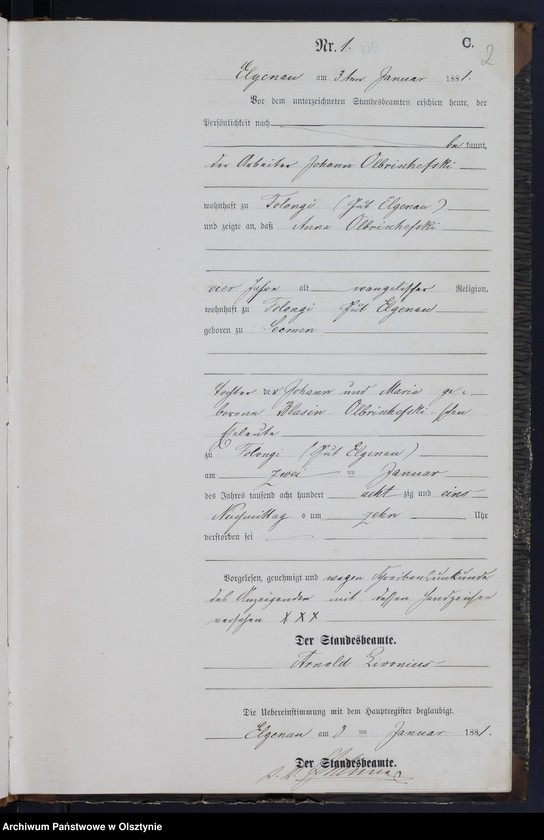 Nr. 1.
C.
2
Elgenau am 3ten Januar 1881.
Vor dem unterzeichneten Standesbeamten erschien heute, der
Persönlichkeit nach
be kannt,
der Arbeiter Johann Olbrischefski
wohnhaft zu Tolongi (Gut Elgenau)
und zeigte an, daß Anna Olbrischefski
vier Jahre alt evangelischer Religion,
wohnhaft zu Tolongi Gut Elgenau
geboren zu Seemen
Tochter der Johann und Maria ge-
borene Blasin Olbrischefski schen
Eheleute
zu Tolongi (Gut Elgenau)
am zwei ten Januar
des Jahres tausend acht hundert acht zig und eins
Nachmittag s um zehn Uhr
verstorben sei
Vorgelesen, genehmigt und wegen Schreibensunkunde
des Anzeigenden mit dessen Handzeichen
versehen XXX
Der Standesbeamte.
Arnold Livonius
Die Uebereinstimmung mit dem Hauptregister beglaubigt.
Elgenau am 3 ten Januar 1881.
Der Standesbeamte.
Archiwum Państwowe w Olsztynie